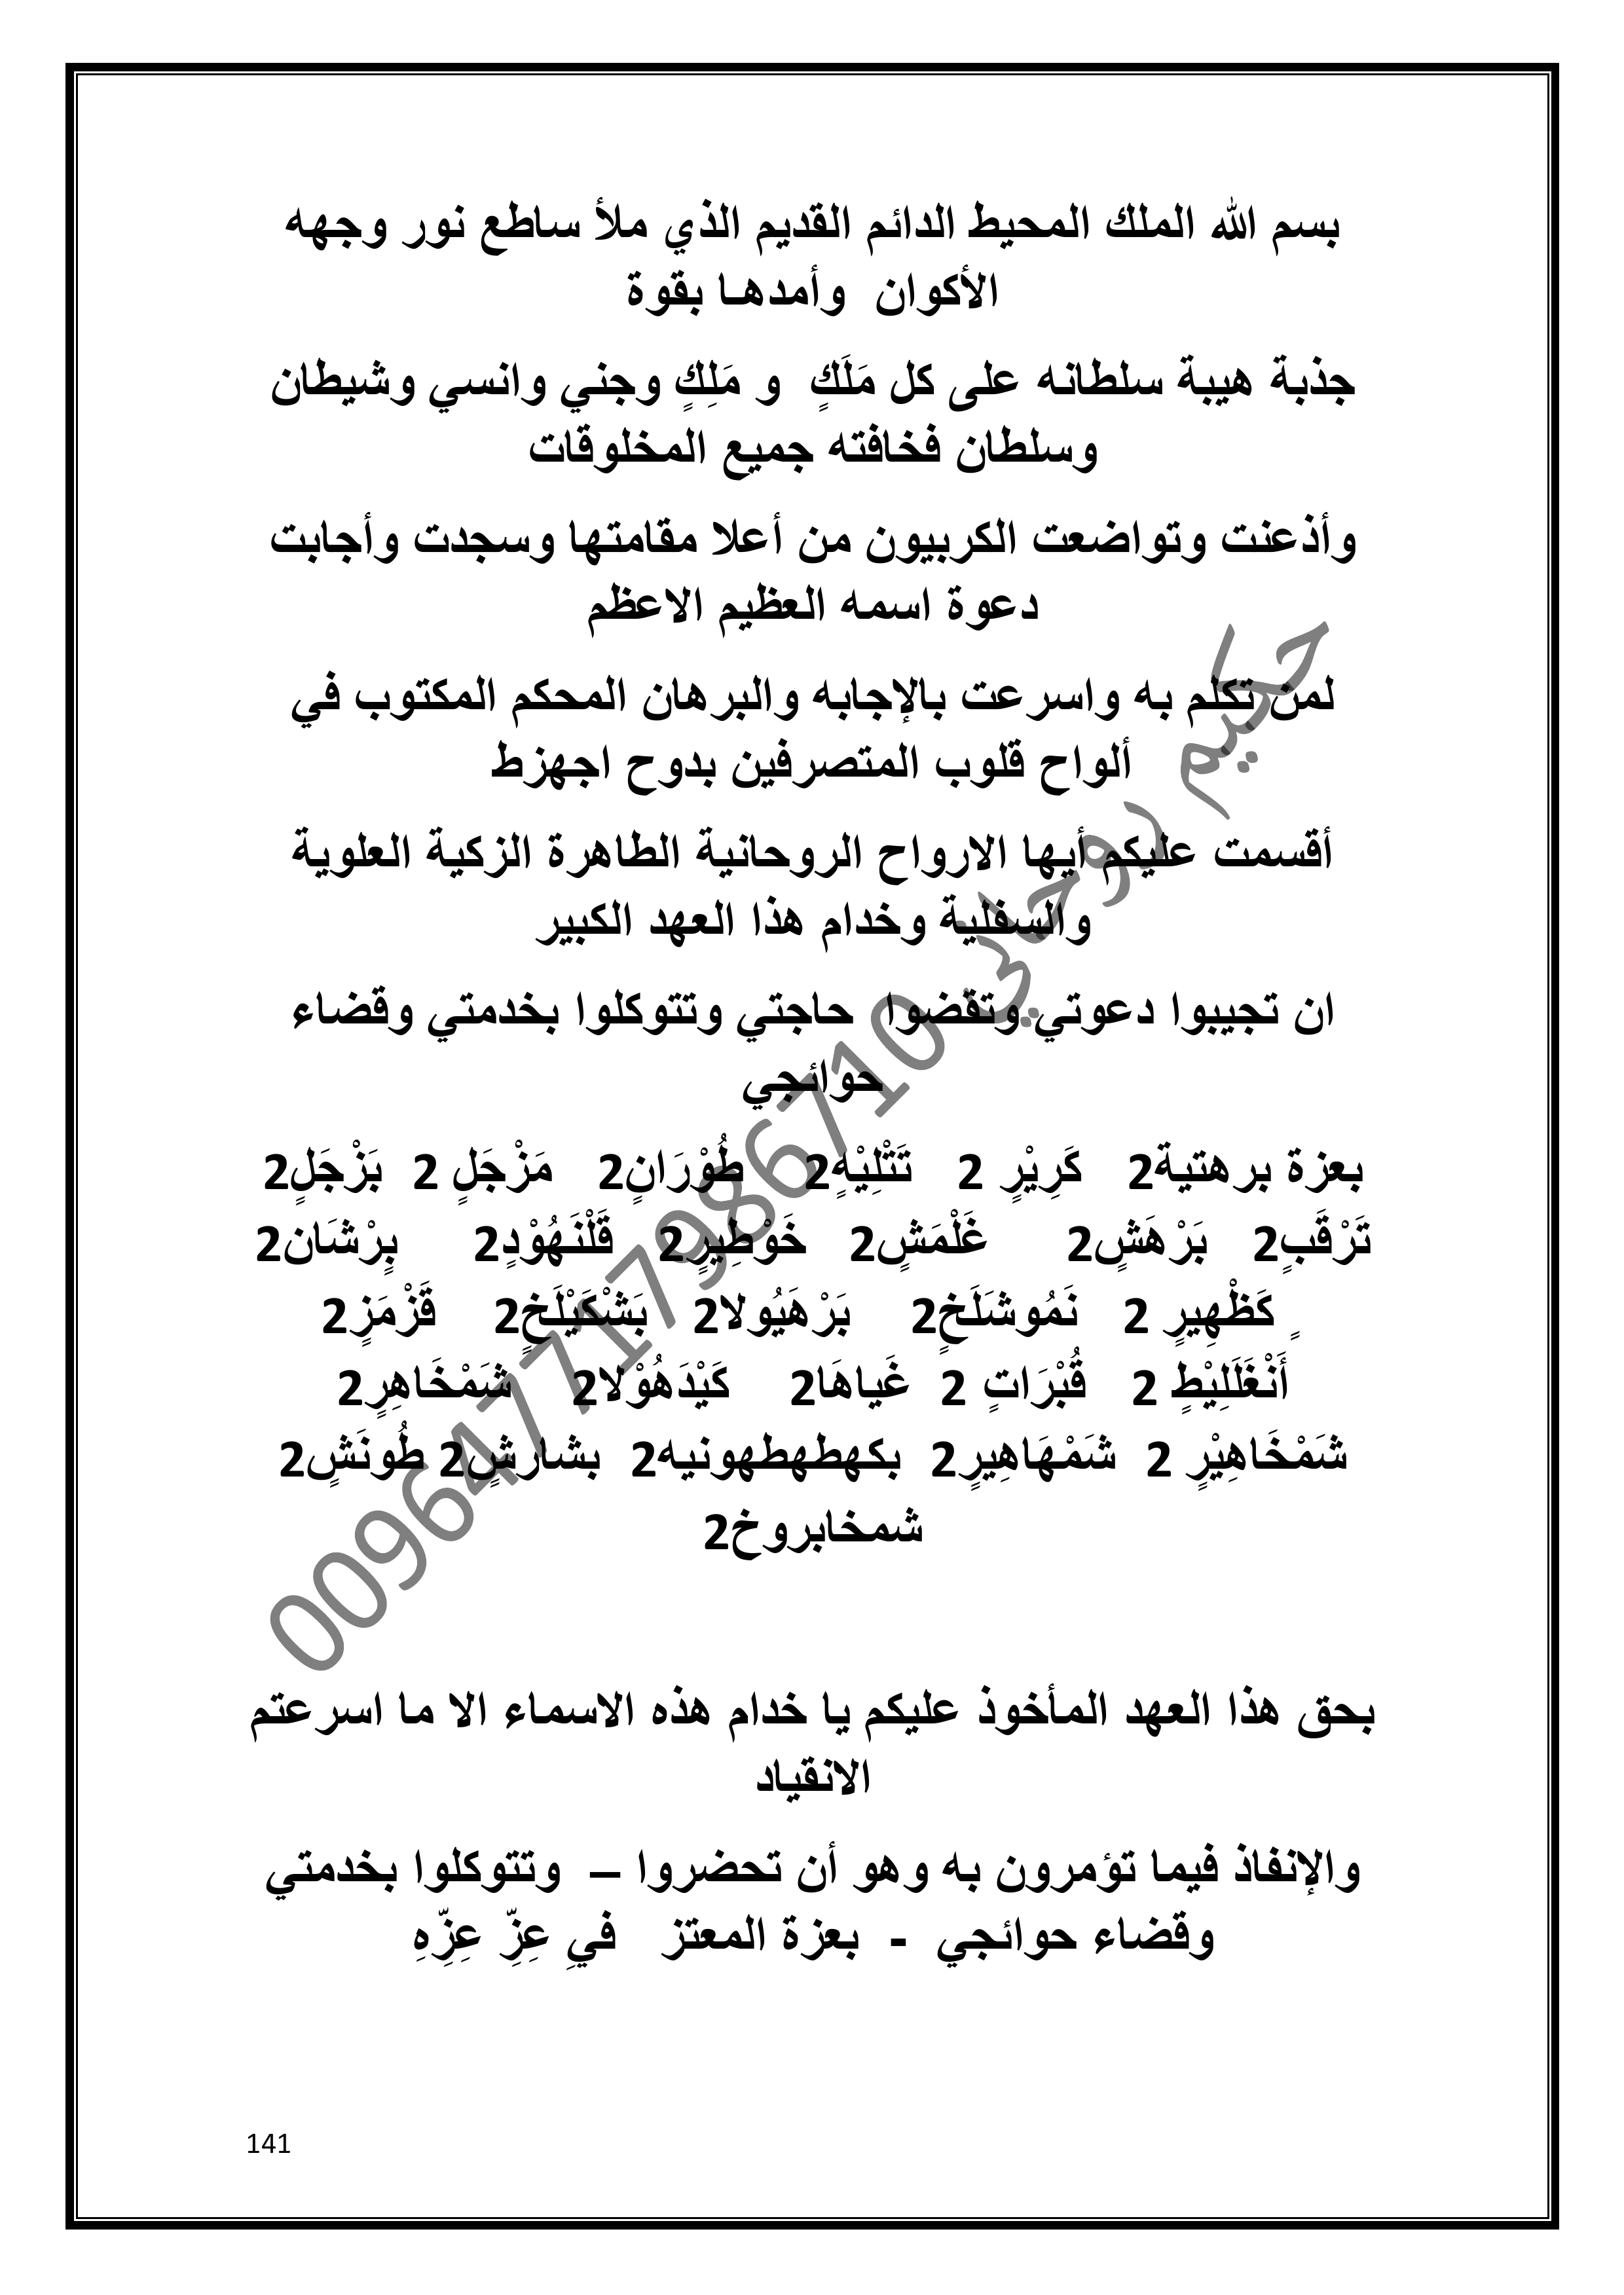 بسم الله الملك المحيط الدائم القديم الذي ملأ ساطع نور وجهه
الأكوان وأمدهـا بقوة
جذبة هيبة سلطانه على كل مَلَكٍ و مَلِكٍ وجني وانسي وشيطان
وسلطان فخافته جميع المخلوقات
وأذعنت وتواضعت الكربيون من أعلا مقامتها وسجدت وأجابت
دعوة اسمه العظيم الاعظم
لمن تكلم به واسرعت بالإجابه والبرهان المحكم المكتوب في
ألواح قلوب المتصرفين بدوح اجهزط
أقسمت عليكم أيها الارواح الروحانية الطاهرة الزكية العلوية
والسفلية وخدام هذا العهد الكبير
ان تجيبوا دعوتي وتقضوا حاجتي وتتوكلوا بخدمتي وقضاء
حوائجي
بعزة برهتية2 كَرِيْرٍ 2 تَتْلِيْهٍ2 طُوْرَانٍ2 مَزْجَلٍ 2 بَزْجَلٍ2
تَرْقَبٍ2 بَرْهَشٍ2 غَلْمَشٍ2 خَوْطِيرٍ2 قَلْنَهُوْدٍ2 بٍرْشَان2
ٍ كَظْهِيرٍ 2 نَمُوشَلَخٍ2 بَرْهَيُولا2 بَشْكَيْلَخٍ2 قَزْمَزٍ2
أَنْغَلَلِيْطٍ 2 قُبْرَاتٍ 2 غَياهَا2 كَيْدَهُوْلا2 شَمْخَاهِرٍ2
شَمْخَاهِيْرٍ 2 شَمْهَاهِيرٍ2 بكهطهطهونيه2 بشارشٍ2 طُونَشٍ2
شمخابروخ2
بحق هذا العهد المأخوذ عليكم يا خدام هذه الاسماء الا ما اسرعتم
الانقياد
والإنفاذ فيما تؤمرون به وهو أن تحضروا – وتتوكلوا بخدمتي
وقضاء حوائجي - بعزة المعتز فيِ عِزِّ عِزِّهِ
حكيم روحاني 009647717986710
141